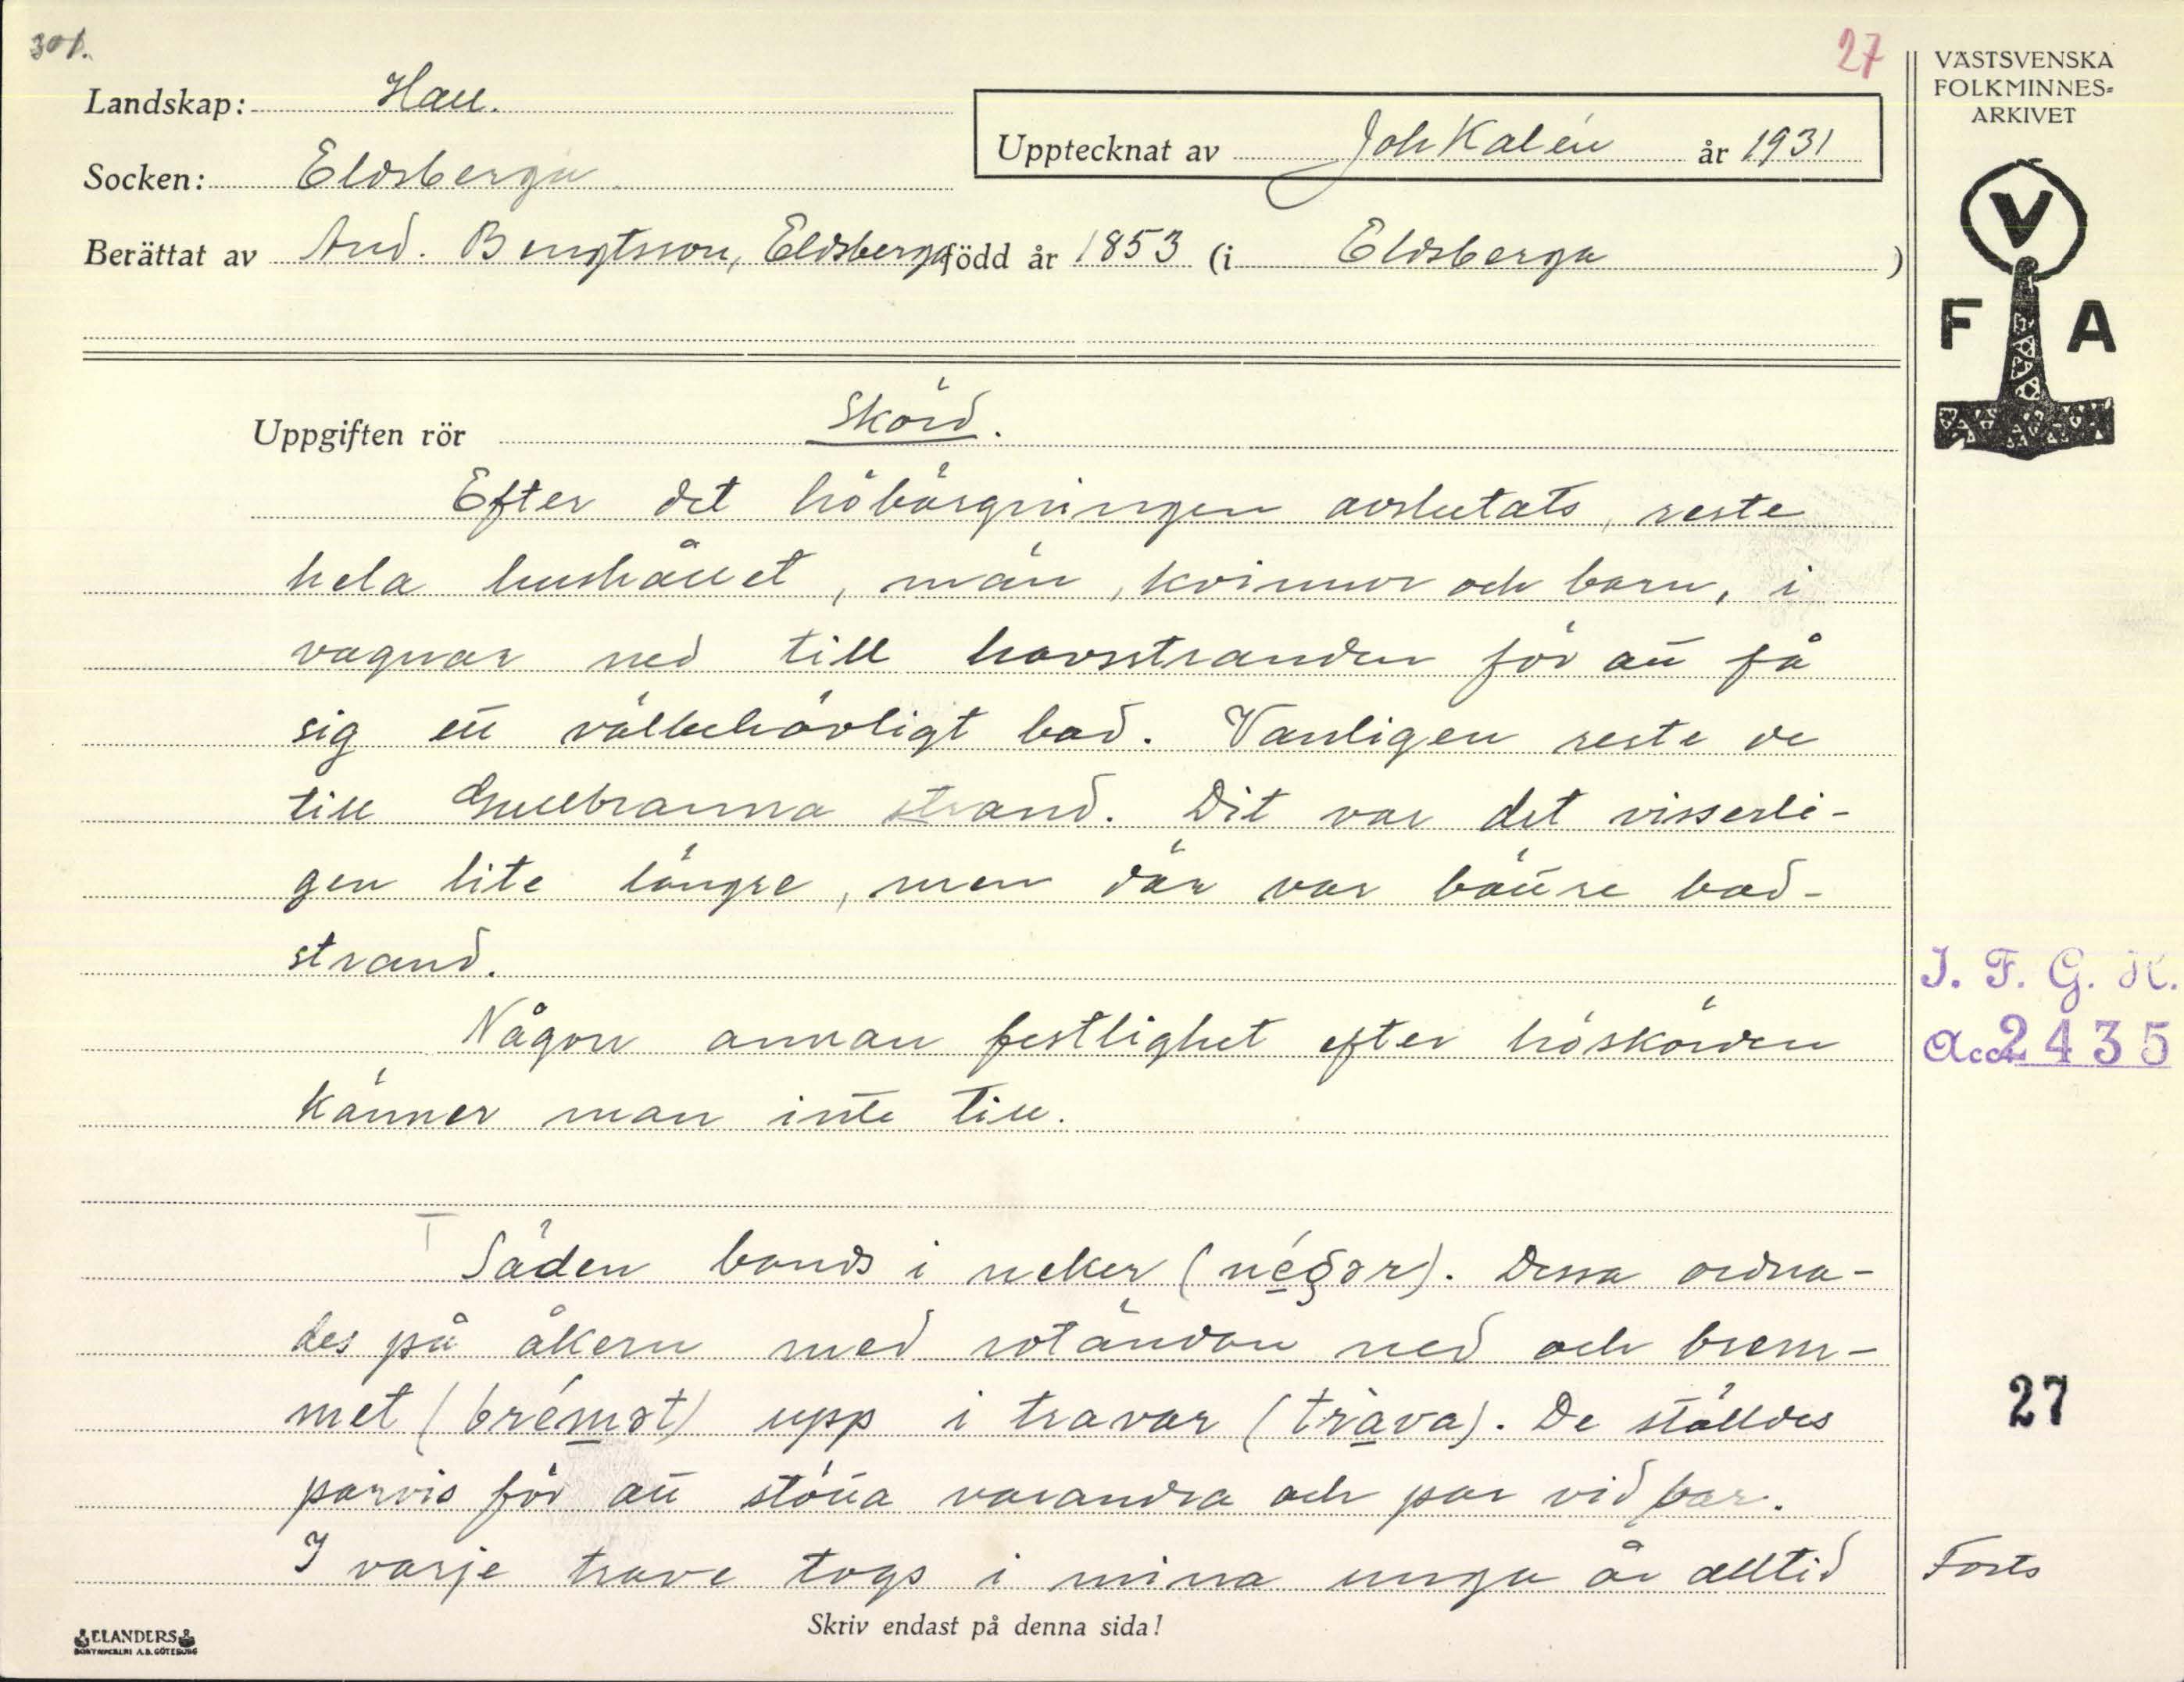 301.
27
VÄSTSVENSKA
FOLKMINNES=
ARKIVET
Landskap: Hall.
Upptecknat av Joh Kalén år 1931
Socken: Eldsberga.
Berättat av And. Bengtsson, Eldsberga född år 1853 (i Eldsberga )
V
F A
Uppgiften rör Skörd.
Efter det höbärgningen avslutats, reste
hela hushållet, män, kvinnor och barn, i
vagnar ned till havsstranden för att få
sig ett välbehövligt bad. Vanligen reste de
till Gullbranna strand. Dit var det visserli-
gen lite längre, men där var bättre bad-
strand.
I. F. G. H.
Någon annan festlighet efter höskörden
Acc. 2435
känner man inte till.
Säden bands i neker (négər). Dessa ordna-
des på åkern med rotändan ned och brem-
met (brémət) upp i travar (tràva). De ställdes
27
parvis för att stötta varandra och par vid par.
I varje trave togs i mina unga år alltid
Forts
Skriv endast på denna sida!
ELANDERS
BOKTRYCKERI A.B. GÖTEBORG